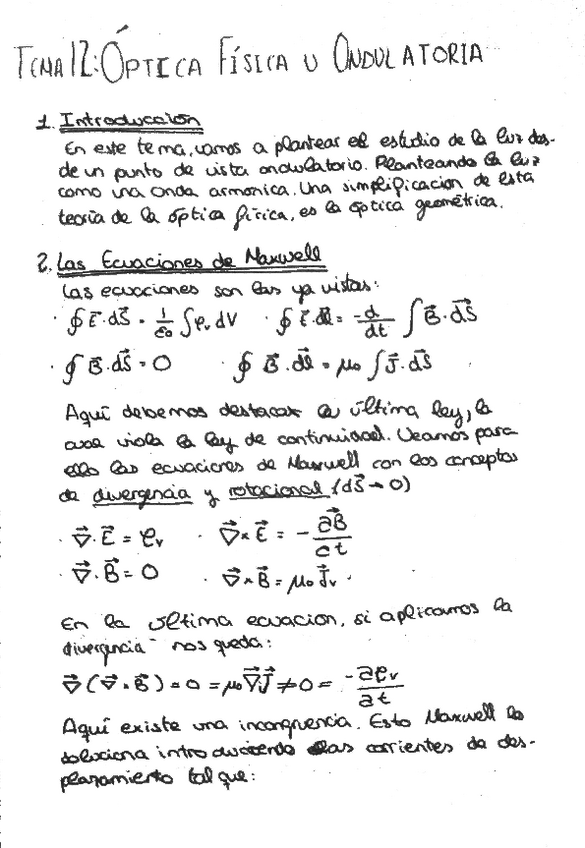 TEMA 12: ÓPTICA FÍSICA U ONDULATORIA
1. Introducción
En este tema, vamos a plantear el estudio de la luz des-
de un punto de vista ondulatorio. Planteando la luz
como una onda armonica. Una simplificacion de esta
teoría de la óptica física, es la optica geométrica.
2. Las Ecuaciones de Maxwell
Las ecuaciones son las ya vistas:
· ∮ E⃗·dS⃗ = 1/ε₀ ∫ρᵥ dV · ∮ E⃗·dl⃗ = -d/dt ∫ B⃗·dS⃗
· ∮ B⃗·dS⃗ = 0 · ∮ B⃗·dl⃗ = μ₀ ∫ J⃗·dS⃗
Aquí debemos destacar la última ley, la
cual viola la ley de continuidad. Veamos para
ello las ecuaciones de Maxwell con los conceptos
de divergencia y rotacional (dS⃗ → 0)
· ∇⃗·E⃗ = ρᵥ · ∇⃗×E⃗ = - ∂B⃗/∂t
· ∇⃗·B⃗ = 0 · ∇⃗×B⃗ = μ₀ J⃗ᵥ
En la última ecuacion, si aplicamos la
divergencia nos queda:
∇⃗(∇⃗×B⃗) = 0 = μ₀∇⃗J⃗ ≠ 0 = -∂ρᵥ/∂t
Aquí existe una incongruencia. Esto Maxwell lo
soluciona introduciendo las corrientes de des-
plazamiento tal que: